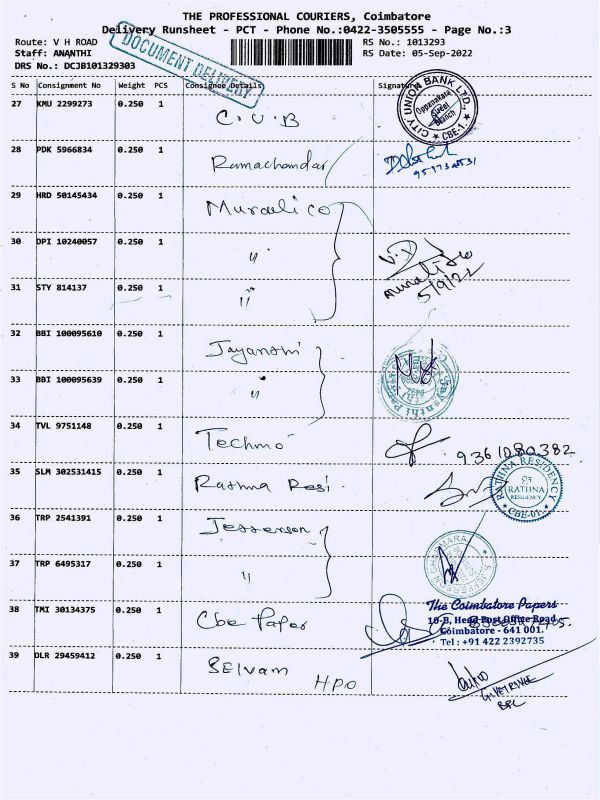 THE PROFESSIONAL COURIERS, Coimbatore
Delivery Runsheet - PCT - Phone No.:0422-3505555 - Page No.:3
Route: V H ROAD
RS No.: 1013293
Staff: ANANTHI
RS Date: 05-Sep-2022
DRS No.: DCJB101329303
DOCUMENT DELIVERY
S No Consignment No Weight PCS Consignee Details Signature
27 KMU 2299273 0.250 1 C.U.B
CITY UNION BANK LTD.,
Oppanakara
Street
Branch
CBE-1
28 PDK 5966834 0.250 1 Ramachandar
29 HRD 50145434 0.250 1 Murali co
30 DPI 10240057 0.250 1 "
5/9/22
31 STY 814137 0.250 1 "
32 BBI 100095610 0.250 1 Jayanthi
33 BBI 100095639 0.250 1 "
34 TVL 9751148 0.250 1 Techno
9361080382
35 SLM 302531415 0.250 1 Rathna Resi.
RATHNA RESIDENCY
RATHNA
RESIDENCY
CBE-01
36 TRP 2541391 0.250 1 Jefferson
37 TRP 6495317 0.250 1 "
38 TMI 30134375 0.250 1 Cbe Paper
The Coimbatore Papers
10-B, Head Post Office Road,
Coimbatore - 641 001.
Tel : +91 422 2392735
39 DLR 29459412 0.250 1 SELVAM
HPO